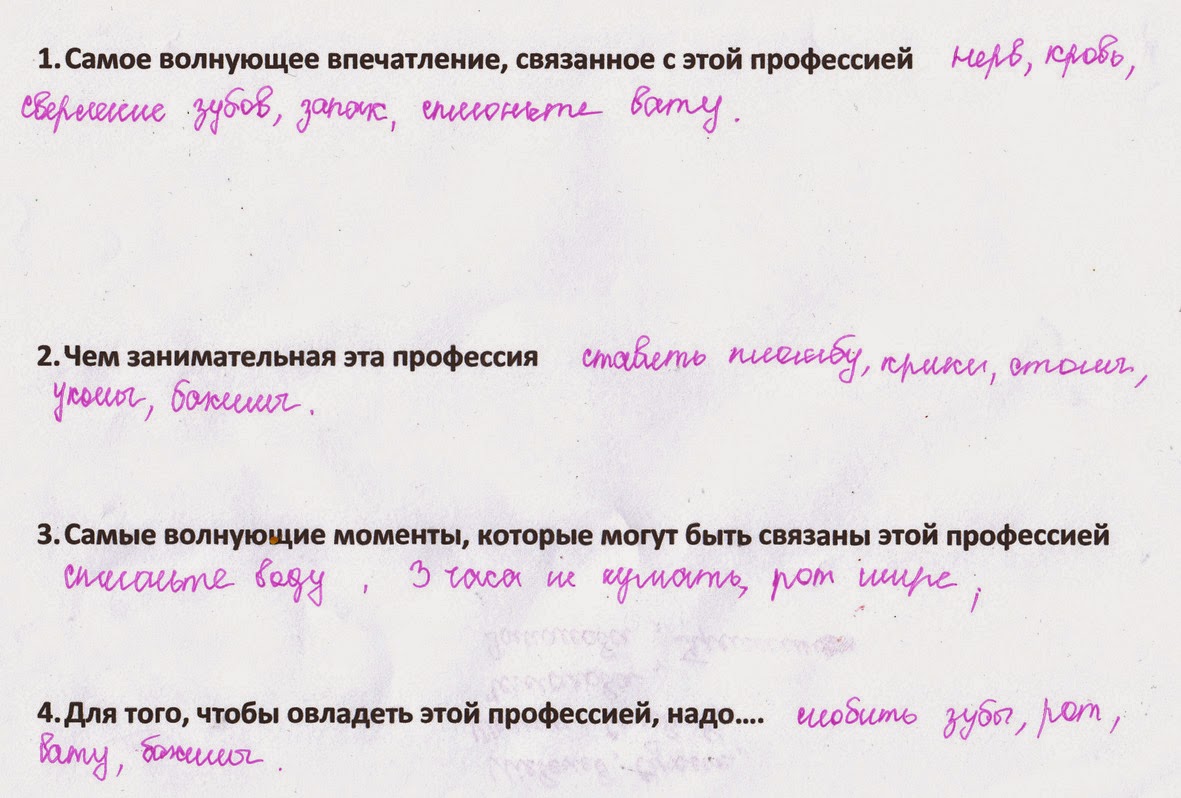 1. Самое волнующее впечатление, связанное с этой профессией нерв, кровь,
сверление зубов, запах, сплюньте вату.
2. Чем занимательная эта профессия ставить пломбу, крики, стоны,
уколы, бахилы.
3. Самые волнующие моменты, которые могут быть связаны этой профессией
сплюньте воду, 3 часа не кушать, рот шире;
4. Для того, чтобы овладеть этой профессией, надо.... любить зубы, рот,
вату, бахилы.